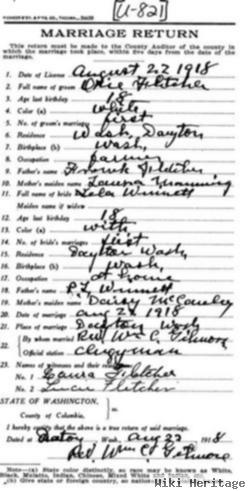 [U-82]
MARRIAGE RETURN
This return must be made to the County Auditor of the county in which the marriage took place, within five days from the date of the marriage.
1. Date of License August 22 1918
2. Full name of groom Orie Fletcher
3. Age last birthday 18
4. Color (a) white
5. No. of groom's marriage first
6. Residence Wash, Dayton
7. Birthplace (b) Wash,
8. Occupation farmer
9. Father's name Frank Fletcher
10. Mother's maiden name Laura
11. Full name of bride Lela Winnett
Maiden name if widow
12. Age last birthday 18
13. Color (a) with
14. No. of bride's marriage first
15. Residence Dayton Wash,
16. Birthplace (b) Wash,
17. Occupation at home
18. Father's name P.L. Winnett
19. Mother's maiden name Daisy McCauley
20. Date of marriage aug 22 1918
21. Place of marriage Dayton Wash
22. By whom married Rev Wm C. Gilmore
Official station clergyman
23. Names of witnesses and their
No. 1 Laura Fletcher
No. 2 Fletcher
STATE OF WASHINGTON,
County of Columbia, ss.
I hereby certify that the above is a true return of said marriage.
Dated at Wash., aug 22 1918
Rev. Wm C Gilmore
Note—(a) State color distinctly, so race may be known as White, Black, Mulatto, Indian, Chinese, Mixed White
(b) Give state or foreign country, so
Wiki Heritage